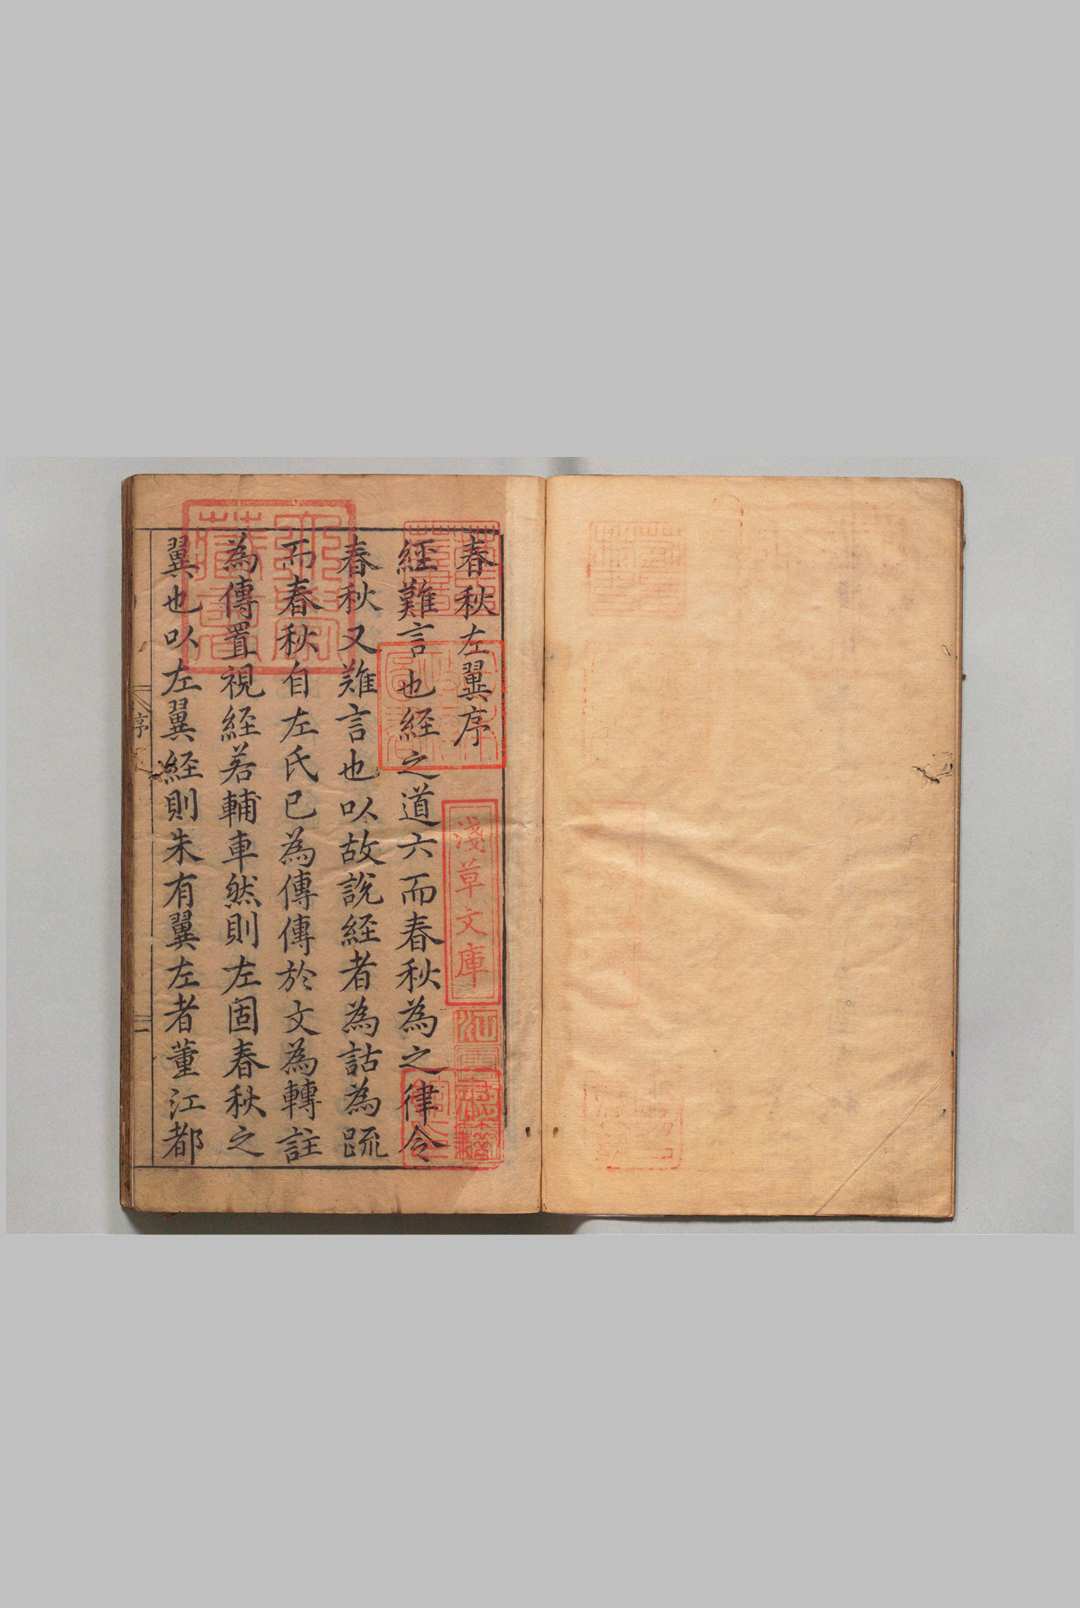 春秋左翼序
經難言也經之道六而春秋為之律令
春秋又難言也以故說經者為詁為䟽
而春秋自左氏已為傳傳於文為轉註
為傳置視經若輔車然則左固春秋之
翼也以左翼經則朱有翼左者董江都
序
一
淺草文庫